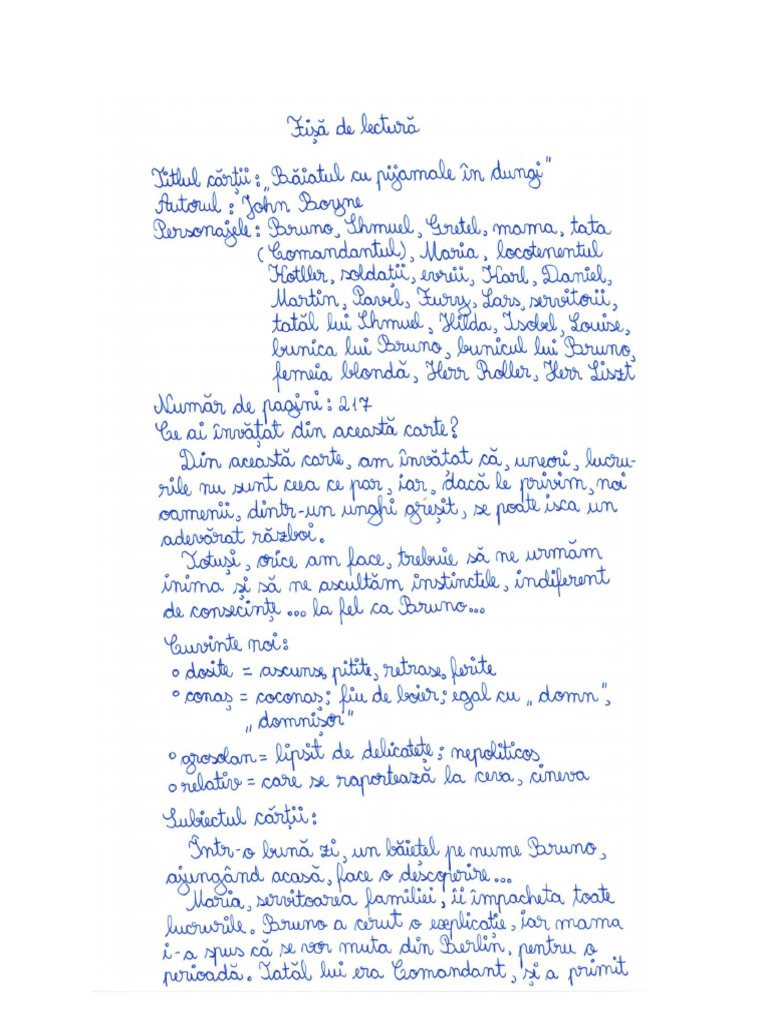 Fișă de lectură
Titlul cărții: „Băiatul cu pijamale în dungi"
Autorul: John Boyne
Personajele: Bruno, Shmuel, Gretel, mama, tata
(Comandantul), Maria, locotenentul
Kotller, soldații, evreii, Karl, Daniel,
Martin, Pavel, Fury, Lars, servitorii,
tatăl lui Shmuel, Hilda, Isobel, Louise,
bunica lui Bruno, bunicul lui Bruno,
femeia blondă, Herr Roller, Herr Liszt
Număr de pagini: 217
Ce ai învățat din această carte?
Din această carte, am învătat că, uneori, lucru-
rile nu sunt ceea ce par, iar, dacă le privim, noi
oamenii, dintr-un unghi greșit, se poate isca un
adevărat război.
Totuși, orice am face, trebuie să ne urmăm
inima și să ne ascultăm instinctele, indiferent
de consecințe... la fel ca Bruno...
Cuvinte noi:
o dosite = ascunse, pitite, retrase, ferite
o conaș = coconaș; fiu de boier; egal cu „domn",
„domnișor"
o grosolan = lipsit de delicatețe; nepoliticos
o relativ = care se raportează la ceva, cineva
Subiectul cărții:
Într-o bună zi, un băiețel pe nume Bruno,
ajungând acasă, face o descoperire...
Maria, servitoarea familiei, îi împacheta toate
lucrurile. Bruno a cerut o explicație, iar mama
i-a spus că se vor muta din Berlin, pentru o
perioadă. Tatăl lui era Comandant, și a primit